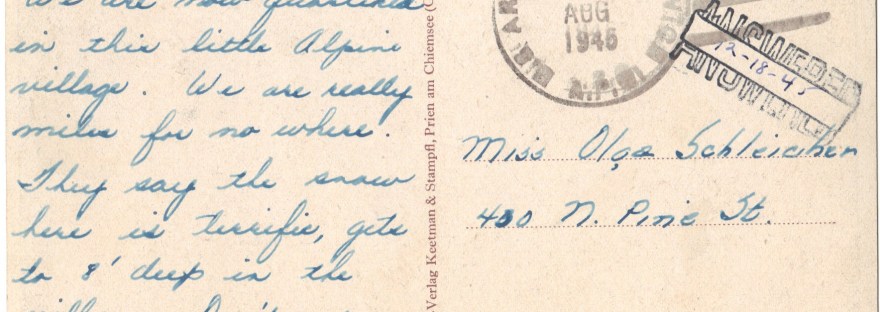 We are now quartered
in this little Alpine
village. We are really
miles for no where.
They say the snow
here is terrific, gets
to 8' deep in the
Verlag Keetman & Stampfl, Prien am Chiemsee
AUG
1945
ANSWERED
12-18-45
Miss Olga Schleicher
400 N. Pine St.